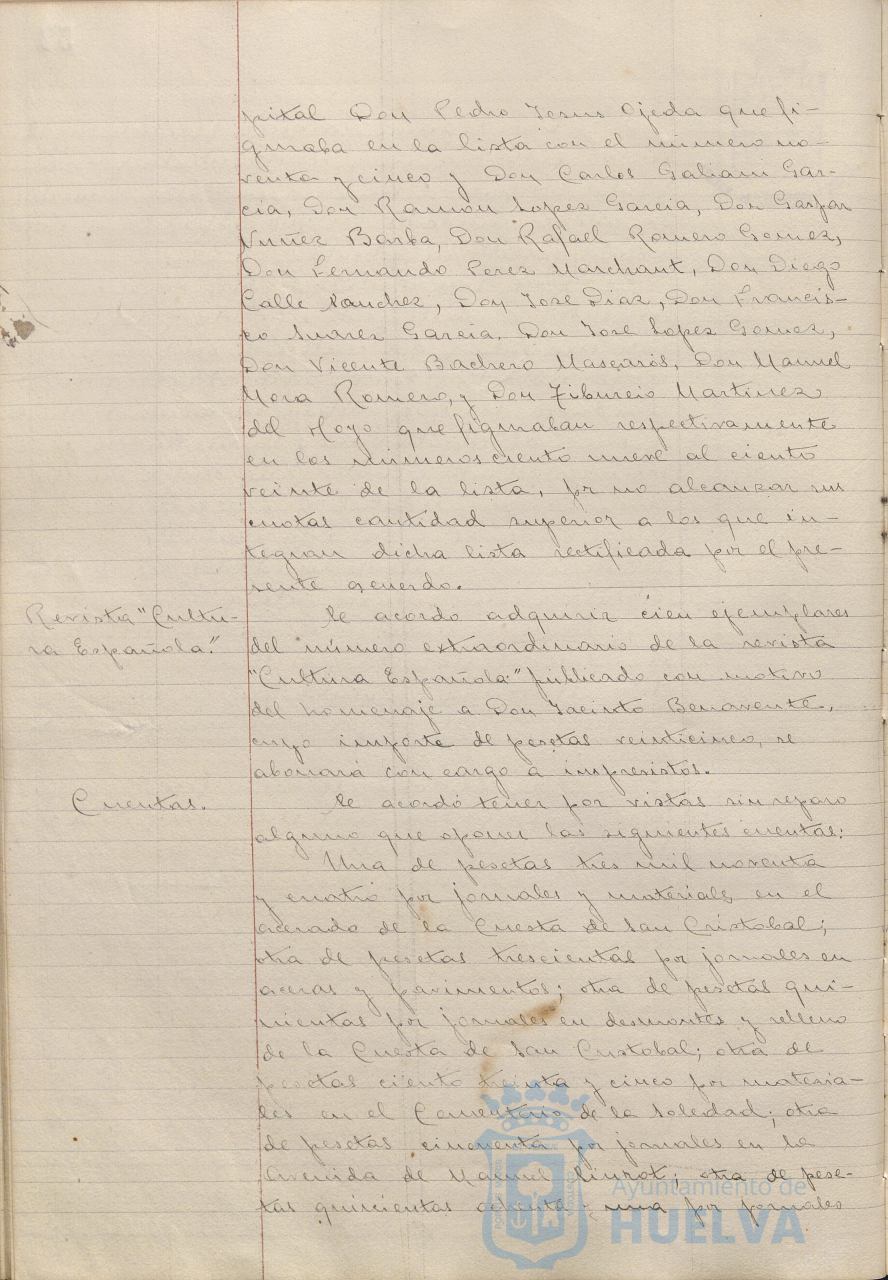 pital Don Pedro Jesus Ojeda que fi-
guraba en la lista con el número no-
venta y cinco y Don Carlos Galiani Gar-
cia, Don Ramón Lopez Garcia, Don Gaspar
Nuñez Barba, Don Rafael Romero Gomez,
Don Fernando Perez Marchant, Don Diego
Calle Sanchez, Don Jose Diaz, Don Francis-
co Suarez Garcia, Don Jose Lopez Gomez,
Don Vicente Bachero Mascarós, Don Manuel
Mora Romero, y Don Tiburcio Martinez
del Hoyo que figuraban respectivamente
en los números ciento nueve al ciento
veinte de la lista, por no alcanzar sus
cuotas cantidad superior a los que in-
tegran dicha lista rectificada por el pre-
sente acuerdo.
Revista "Cultu-
ra Española."
Se acordo adquirir cien ejemplares
del número extraordinario de la revista
"Cultura Española" publicado con motivo
del homenaje a Don Jacinto Benavente,
cuyo importe de pesetas veinticinco, se
abonará con cargo a imprevistos.
Cuentas.
Se acordó tener por vistas sin reparo
alguno que oponer las siguientes cuentas:
Una de pesetas tres mil noventa
y cuatro por jornales y materiales en el
acerado de la Cuesta de San Cristobal;
otra de pesetas trescientas por jornales en
aceras y pavimentos; otra de pesetas qui-
nientas por jornales en desmontes y relleno
de la Cuesta de San Cristobal; otra de
pesetas ciento treinta y cinco por materia-
les en el Cementerio de la Soledad; otra
de pesetas cincuenta por jornales en la
Avenida de Manuel Siurot; otra de pese-
tas quinientas ochenta y una por jornales
Ayuntamiento de
HUELVA